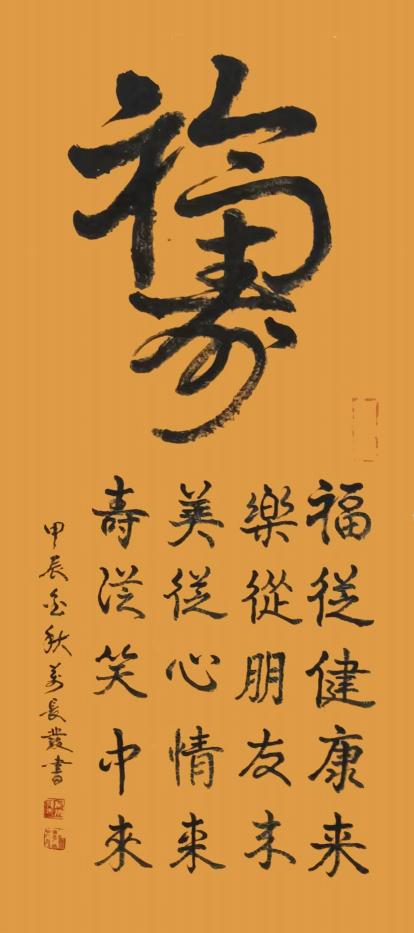 福壽
福從健康来
樂從朋友来
美從心情来
壽從笑中來
甲辰金秋萬長發書